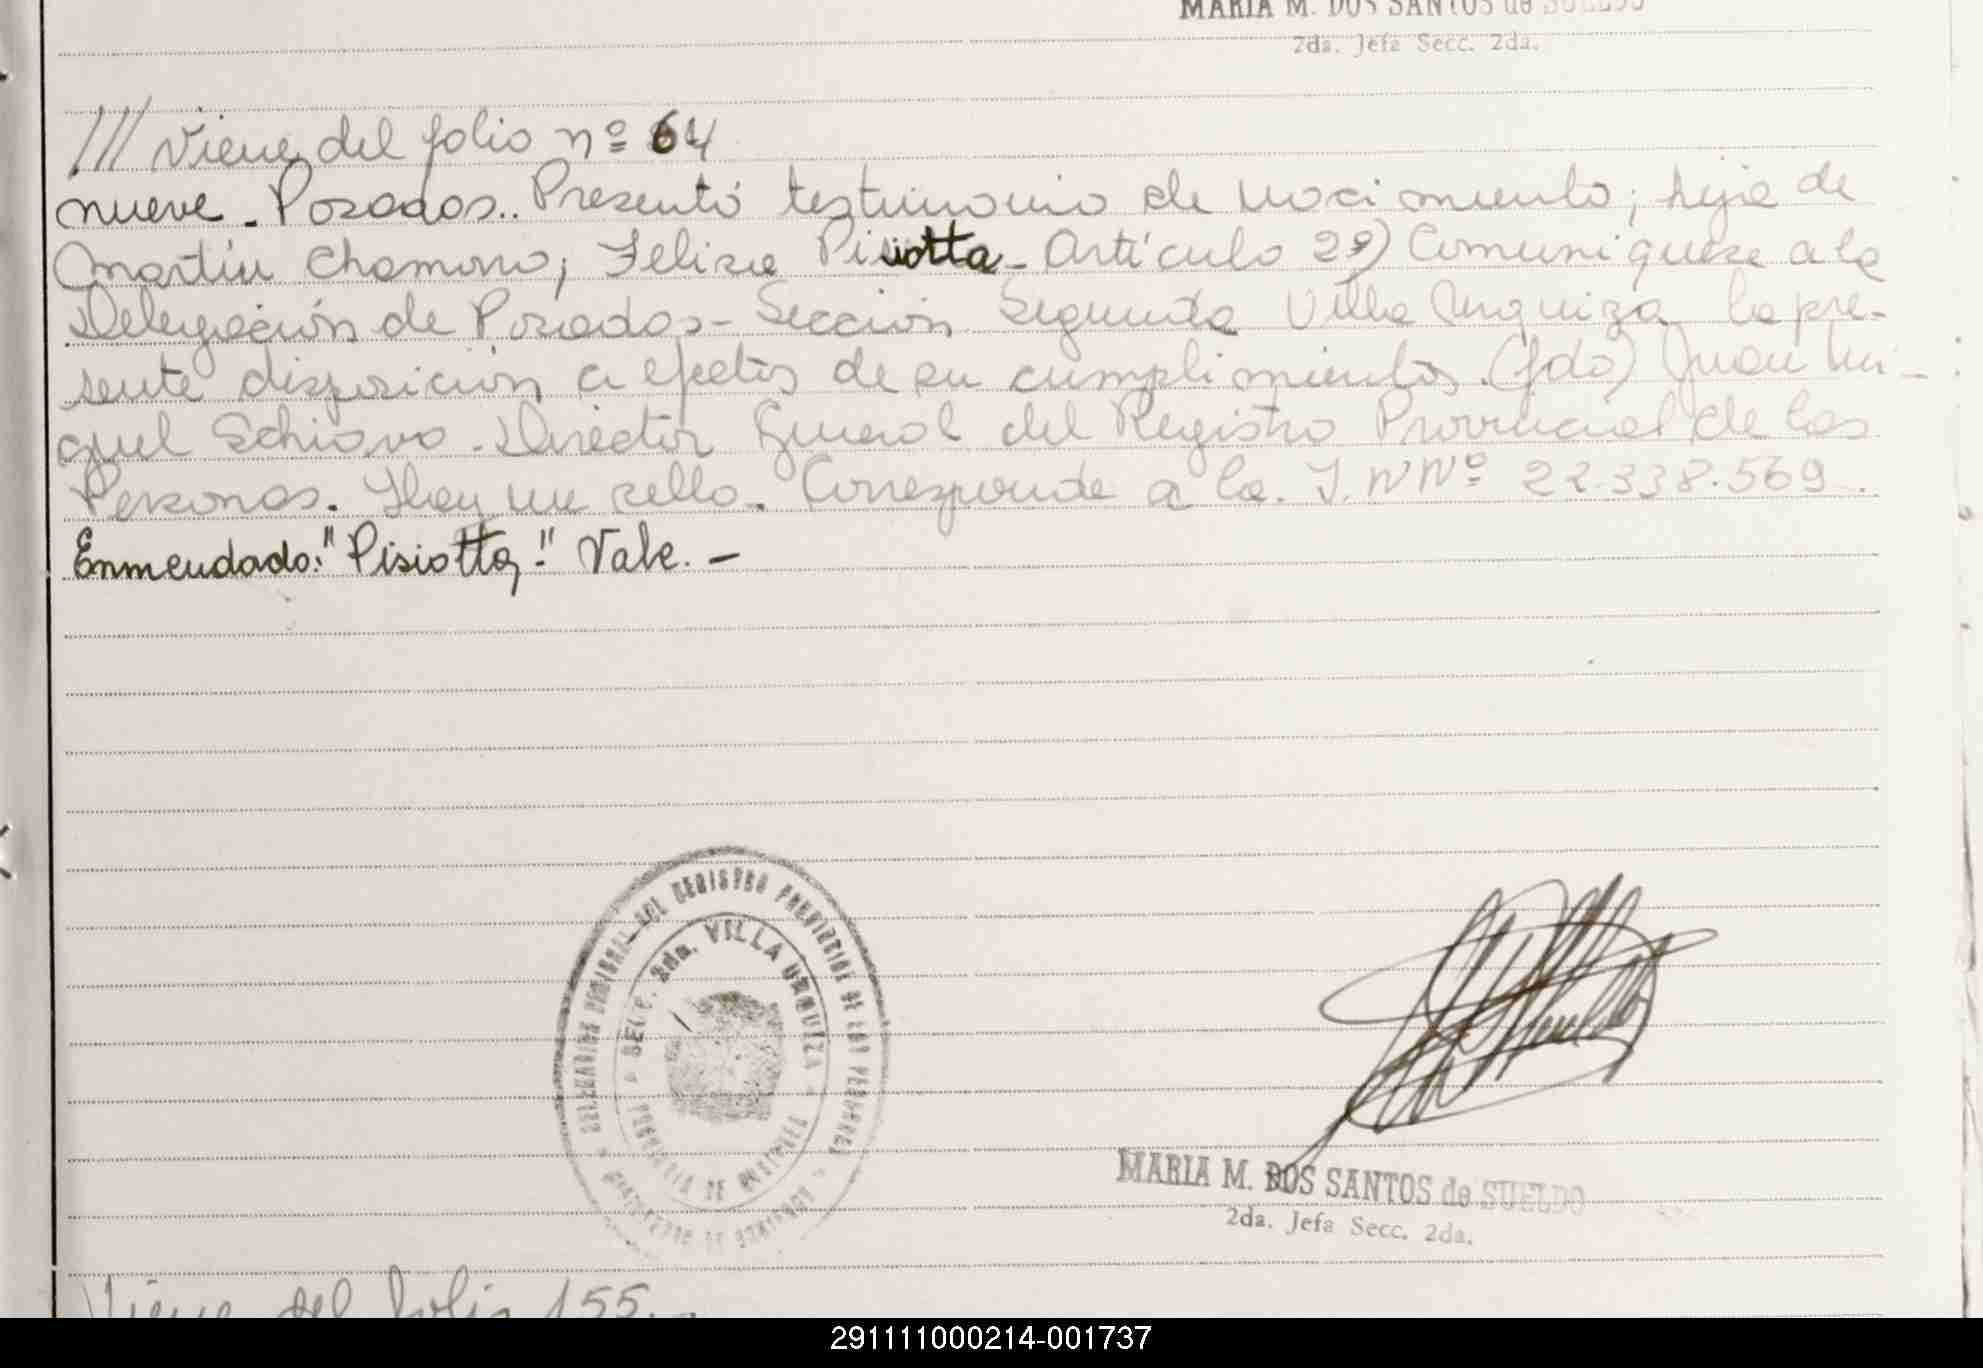 MARIA M. DOS SANTOS de SUELDO
2da. Jefa Secc. 2da.
/// Viene del folio nº 64
nueve.- Posadas.. Presentó testimonio de nacimiento; hija de
Martín Chamorro; Felisa Pisiotta - Artículo 2º) Comuniquese a la
Delegación de Posadas - Sección Segunda Villa Urquiza la pre-
sente disposición a efectos de su cumplimiento. (fdo) Juan Mi-
guel Schiavo - Director General del Registro Provincial de las
Personas. Hay un sello. Corresponde a la I. Nº 22.338.569.
Enmendado: "Pisiotta," Vale. -
DELEGACION REGIONAL DEL REGISTRO PROVINCIAL DE LAS PERSONAS
SECC. 2da. VILLA URQUIZA
PROVINCIA DE MISIONES
MARIA M. DOS SANTOS de SUELDO
2da. Jefa Secc. 2da.
Viene del folio 155.-
291111000214-001737